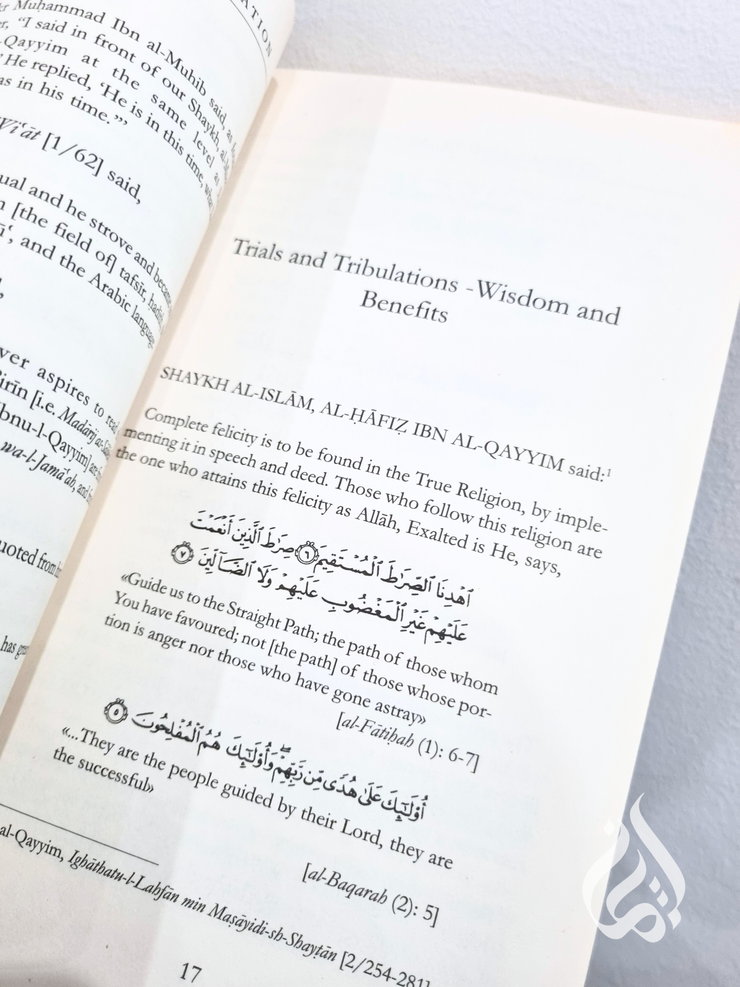 ATION
Muḥammad Ibn al-Muhib said,
"I said in front of our Shaykh,
Qayyim at the same level as
He replied, 'He is in this time,
as in his time.'"
Wi'āt [1/62] said,
ual and he strove and became
n [the field of] tafsīr, hadīth
, and the Arabic language
ver aspires to read
irīn [i.e. Madārij as-
bnu-l-Qayyim] are
wa-l-Jamā'ah, and
uoted from
has
Trials and Tribulations -Wisdom and
Benefits
SHAYKH AL-ISLĀM, AL-ḤĀFIẒ IBN AL-QAYYIM said:¹
Complete felicity is to be found in the True Religion, by imple-
menting it in speech and deed. Those who follow this religion are
the one who attains this felicity as Allāh, Exalted is He, says,
ٱهْدِنَا ٱلصِّرَٰطَ ٱلْمُسْتَقِيمَ ۝٦ صِرَٰطَ ٱلَّذِينَ أَنْعَمْتَ
عَلَيْهِمْ غَيْرِ ٱلْمَغْضُوبِ عَلَيْهِمْ وَلَا ٱلضَّآلِّينَ ۝٧
«Guide us to the Straight Path; the path of those whom
You have favoured; not [the path] of those whose por-
tion is anger nor those who have gone astray»
[al-Fātiḥah (1): 6-7]
أُو۟لَـٰٓئِكَ عَلَىٰ هُدًى مِّن رَّبِّهِمْ ۖ وَأُو۟لَـٰٓئِكَ هُمُ ٱلْمُفْلِحُونَ ۝٥
«...They are the people guided by their Lord, they are
the successful»
[al-Baqarah (2): 5]
al-Qayyim, Ighāthatu-l-Lahfān min Maṣāyidi-sh-Shayṭān [2/254-281]
17